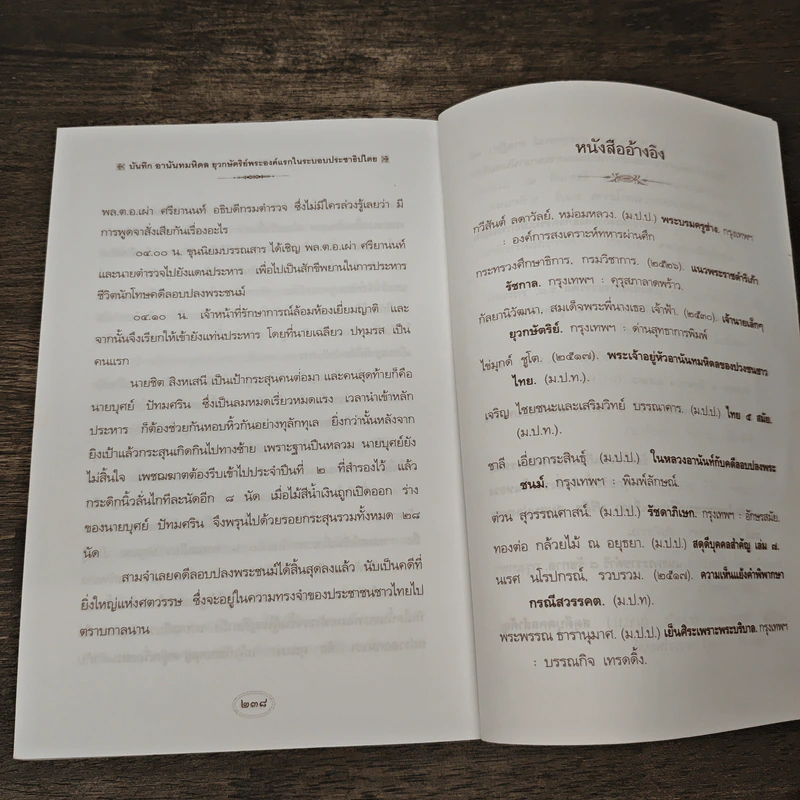 บันทึก อานันทมหิดล ยุวกษัตริย์พระองค์แรกในระบอบประชาธิปไตย
พล.ต.อ.เผ่า ศรียานนท์ อธิบดีกรมตำรวจ ซึ่งไม่มีใครล่วงรู้เลยว่า มี
การพูดจาสั่งเสียกันเรื่องอะไร
๐๔.๐๐ น. ขุนนิยมบรรณสาร ได้เชิญ พล.ต.อ.เผ่า ศรียานนท์
และนายตำรวจไปยังแดนประหาร เพื่อไปเป็นสักขีพยานในการประหาร
ชีวิตนักโทษคดีลอบปลงพระชนม์
๐๔.๑๐ น. เจ้าหน้าที่รักษาการณ์ล้อมห้องเยี่ยมญาติ และ
จากนั้นจึงเรียกให้เข้ายังแท่นประหาร โดยที่นายเฉลียว ปทุมรส เป็น
คนแรก
นายชิต สิงหเสนี เป็นเป้ากระสุนคนต่อมา และคนสุดท้ายก็คือ
นายบุศย์ ปัทมศริน ซึ่งเป็นลมหมดเรี่ยวหมดแรง เวลานำเข้าหลัก
ประหาร ก็ต้องช่วยกันหอบหิ้วกันอย่างทุลักทุเล ยิ่งกว่านั้นหลังจาก
ยิงเป้าแล้วกระสุนเกิดกินไปทางซ้าย เพราะฐานปืนหลวม นายบุศย์ยัง
ไม่สิ้นใจ เพชฌฆาตต้องรีบเข้าไปประจำปืนที่ ๒ ที่สำรองไว้ แล้ว
กระดิกนิ้วลั่นไกทีละนัดอีก ๘ นัด เมื่อไม้สีน้ำเงินถูกเปิดออก ร่าง
ของนายบุศย์ ปัทมศริน จึงพรุนไปด้วยรอยกระสุนรวมทั้งหมด ๒๘
นัด
สามจำเลยคดีลอบปลงพระชนม์ได้สิ้นสุดลงแล้ว นับเป็นคดีที่
ยิ่งใหญ่แห่งศตวรรษ ซึ่งจะอยู่ในความทรงจำของประชาชนชาวไทยไป
ตราบกาลนาน
๒๓๘
หนังสืออ้างอิง
กวีสันต์ ลดาวัลย์, หม่อมหลวง. (ม.ป.ป.) พระบรมครูช่าง. กรุงเทพฯ
: องค์การสงเคราะห์ทหารผ่านศึก
กระทรวงศึกษาธิการ. กรมวิชาการ. (๒๕๒๖). แนวพระราชดำริเก้า
รัชกาล. กรุงเทพฯ : คุรุสภาลาดพร้าว.
กัลยานิวัฒนา, สมเด็จพระพี่นางเธอ เจ้าฟ้า. (๒๕๓๐). เจ้านายเล็กๆ
ยุวกษัตริย์. กรุงเทพฯ : ด่านสุทธาการพิมพ์
ไข่มุกด์ ชูโต. (๒๕๑๗). พระเจ้าอยู่หัวอานันทมหิดลของปวงชนชาว
ไทย. (ม.ป.ท.).
เจริญ ไชยชนะและเสริมวิทย์ บรรณาคาร. (ม.ป.ป.) ไทย ๕ สมัย.
(ม.ป.ท.).
ชาลี เอี่ยวกระสินธุ์ (ม.ป.ป.) ในหลวงอานันท์กับคดีลอบปลงพระ
ชนม์. กรุงเทพฯ : พิมพ์ลักษณ์.
ต่วน สุวรรณศาสน์. (ม.ป.ป.) รัชดาภิเษก. กรุงเทพฯ : อักษรสมัย.
ทองต่อ กล้วยไม้ ณ อยุธยา. (ม.ป.ป.) สดุดีบุคคลสำคัญ เล่ม ๗.
นเรศ นโรปกรณ์, รวบรวม. (๒๕๑๗). ความเห็นแย้งคำพิพากษา
กรณีสวรรคต. (ม.ป.ท).
พระพรรณ ธารานุมาศ. (ม.ป.ป.) เย็นศิระเพราะพระบริบาล. กรุงเทพฯ
: บรรณกิจ เทรดดิ้ง.